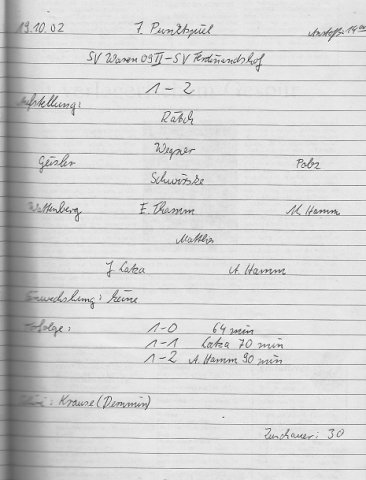 19.10.02 7. Punktspiel Anstoß: 14 00
SV Waren 09 II - SV Ferdinandshof
1 - 2
Aufstellung:
Rätsch
Wegner
Geisler Polz
Schwörske
Wattenberg E. Thamm M. Hamm
J. Latza A. Hamm
Einwechslung: keine
Torfolge: 1-0 64 min
1-1 Latza 70 min
1-2 A. Hamm 90 min
Krause (Demmin)
Zuschauer: 30